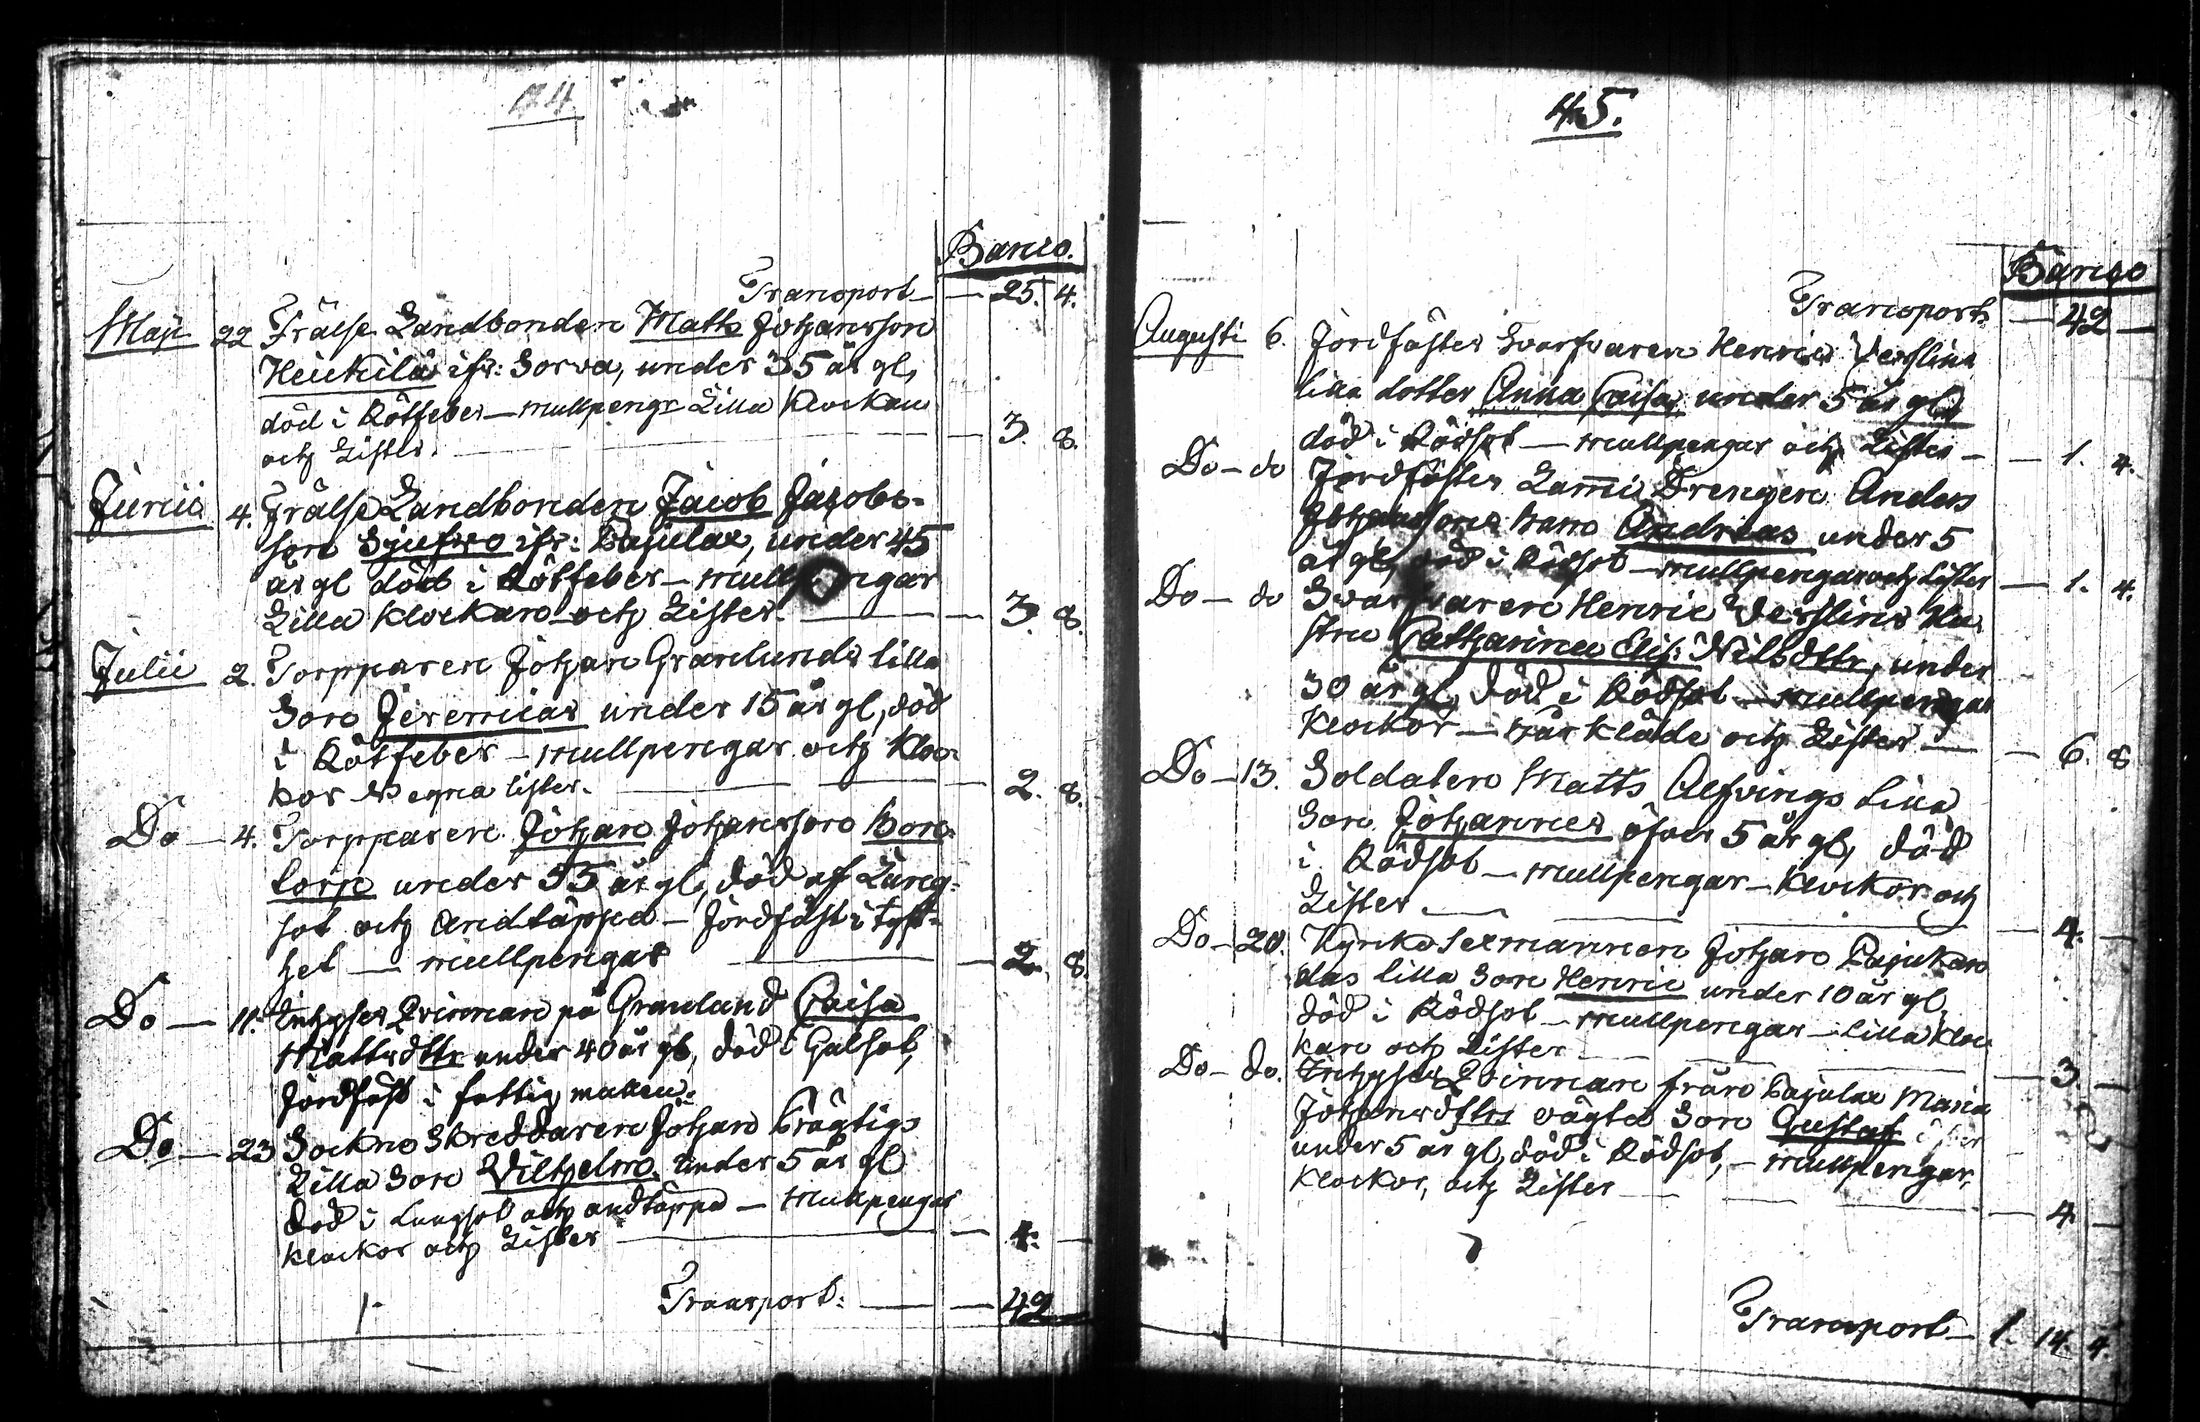 44
Banco.
Transport — 25. 4.
Maji 22 Frälse Landbonden Matts Johansson
Heikilä ifr: Sorva, under 35 år gl,
död i Rötfeber — mullpengr Lilla Klockan
och Lister. — 3. 8.
Junii 4. Frälse Landbonden Jacob Jacobs-
son ifr: Pajulax, under 45
år gl död i Rötfeber — mullpengar
Lilla Klockan och Lister. — 3. 8.
Julii 2. Torpparen Johan Granlunds lilla
Son Jeremias under 15 år gl, död
i Rötfeber — mullpengar och Kloc-
kor egna lister. — 2. 8.
Do — 4. Torpparen Johan Johansson
under 55 år gl, död af Lung-
sot och Andtäppa — Jordfäst i tyst-
het — mullpengar — 2. 8.
Do — 11. Inhyses Qvinnan på Granlund Caisa
Mattsdttr under 40 år gl, död i Gulsot,
Jordfäst i fattig mullen.
Do — 23 Sockne Skreddaren Johan Prägtigs
Lilla Son Vilhelm under 5 år gl
död i Lungsot och andtäppa — Mullpengar
Klockor och Lister — 4. —
Transport: — 42
45.
Banco
Transport — 42 —
Augusti 6. Jordfästes Svarfvaren Henric Verslins
lilla dotter Anna Caisa under 5 år gl
död i Rödsot — mullpengar och Lister — 1. 4.
Do — do Jordfästes Drengen Anders
Johanssons barn Andreas under 5
år gl, död i Rödsot — mullpengar och Lister — 1. 4.
Do — do Svarfvaren Henric Verslins Hu-
stru Catharina Elis: Nilsdttr, under
30 år gl, död i Rödsot — mullpengar
Klockor — bårkläde och Lister — 6. 8
Do — 13. Soldaten Matts Alfvings Lilla
Son Johannes öfver 5 år gl, död
i Rödsot — mullpengar — Klockor och
Lister — 4. —
Do — 20. Kyrko Sexmannen Johan
lilla Son Henric under 10 år gl,
död i Rödsot — mullpengar — lilla Kloc
kan och Lister — 3 —
Do — do. Inhyses Qvinnan från Pajulax Maria
Johansdttrs oägta Son Gustaf
under 5 år gl, död i Rödsot, — mullpengar,
Klockor, och Lister — 4 —
Transport — 1. 14. 4.